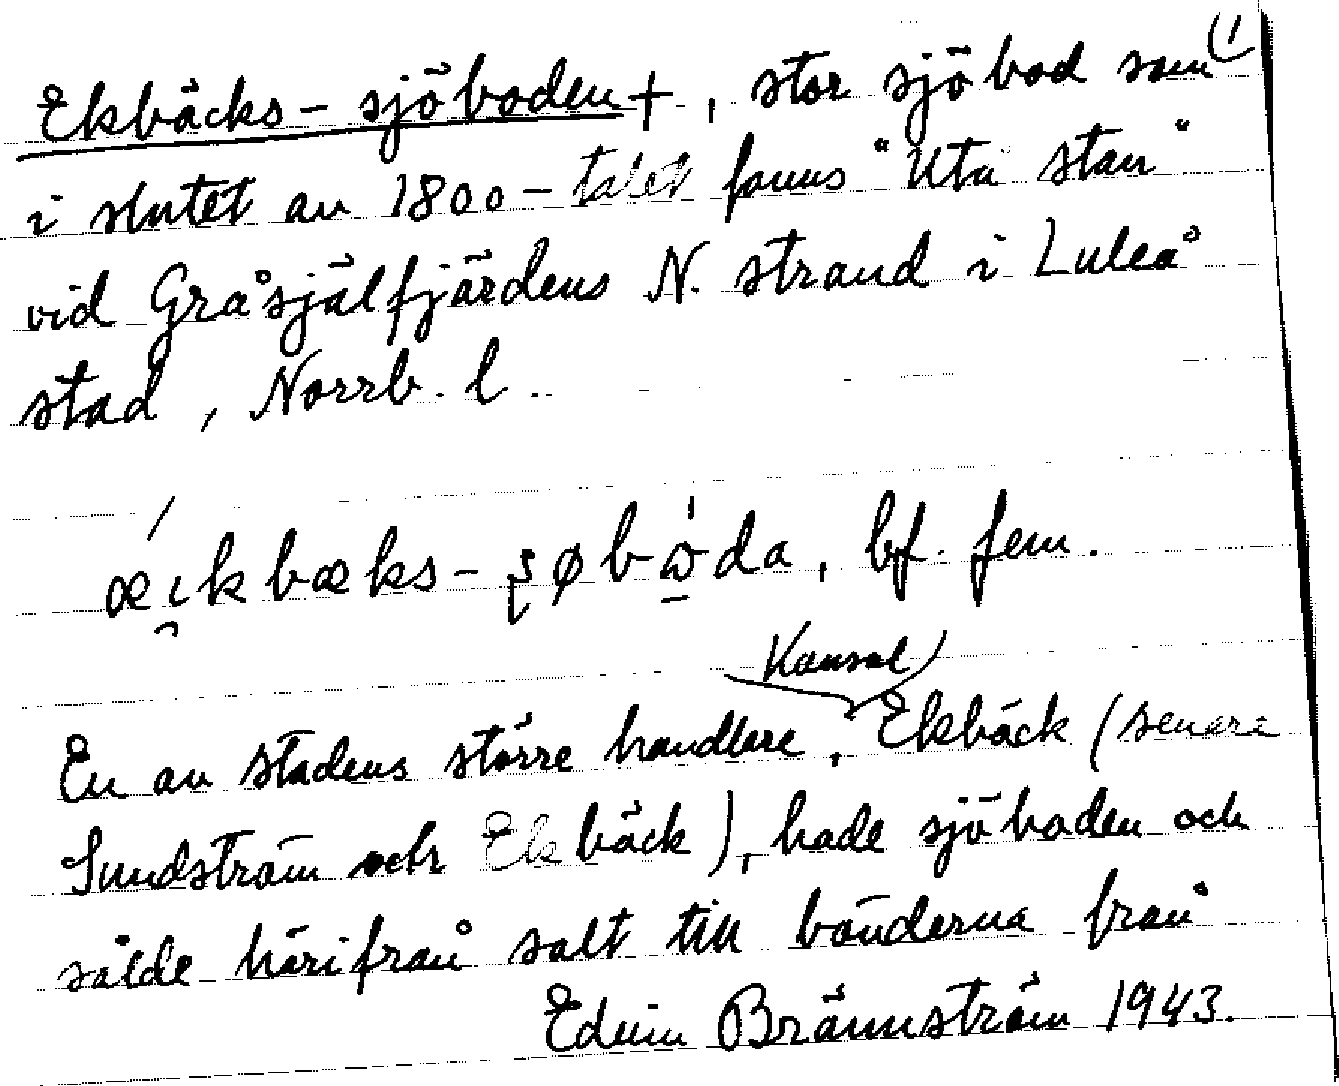 1)
Ekbäcks-sjöboden +, stor sjöbod som
i slutet av 1800-talet fanns "Uta stan"
vid Gråsjälfjärdens N. strand i Luleå
stad, Norrb. l.
bf. fem.
Konsul
En av stadens större handlare, Ekbäck (senare
Sundström och Ekbäck), hade sjöboden och
sålde härifrån salt till bönderna från
Edvin Brännström 1943.